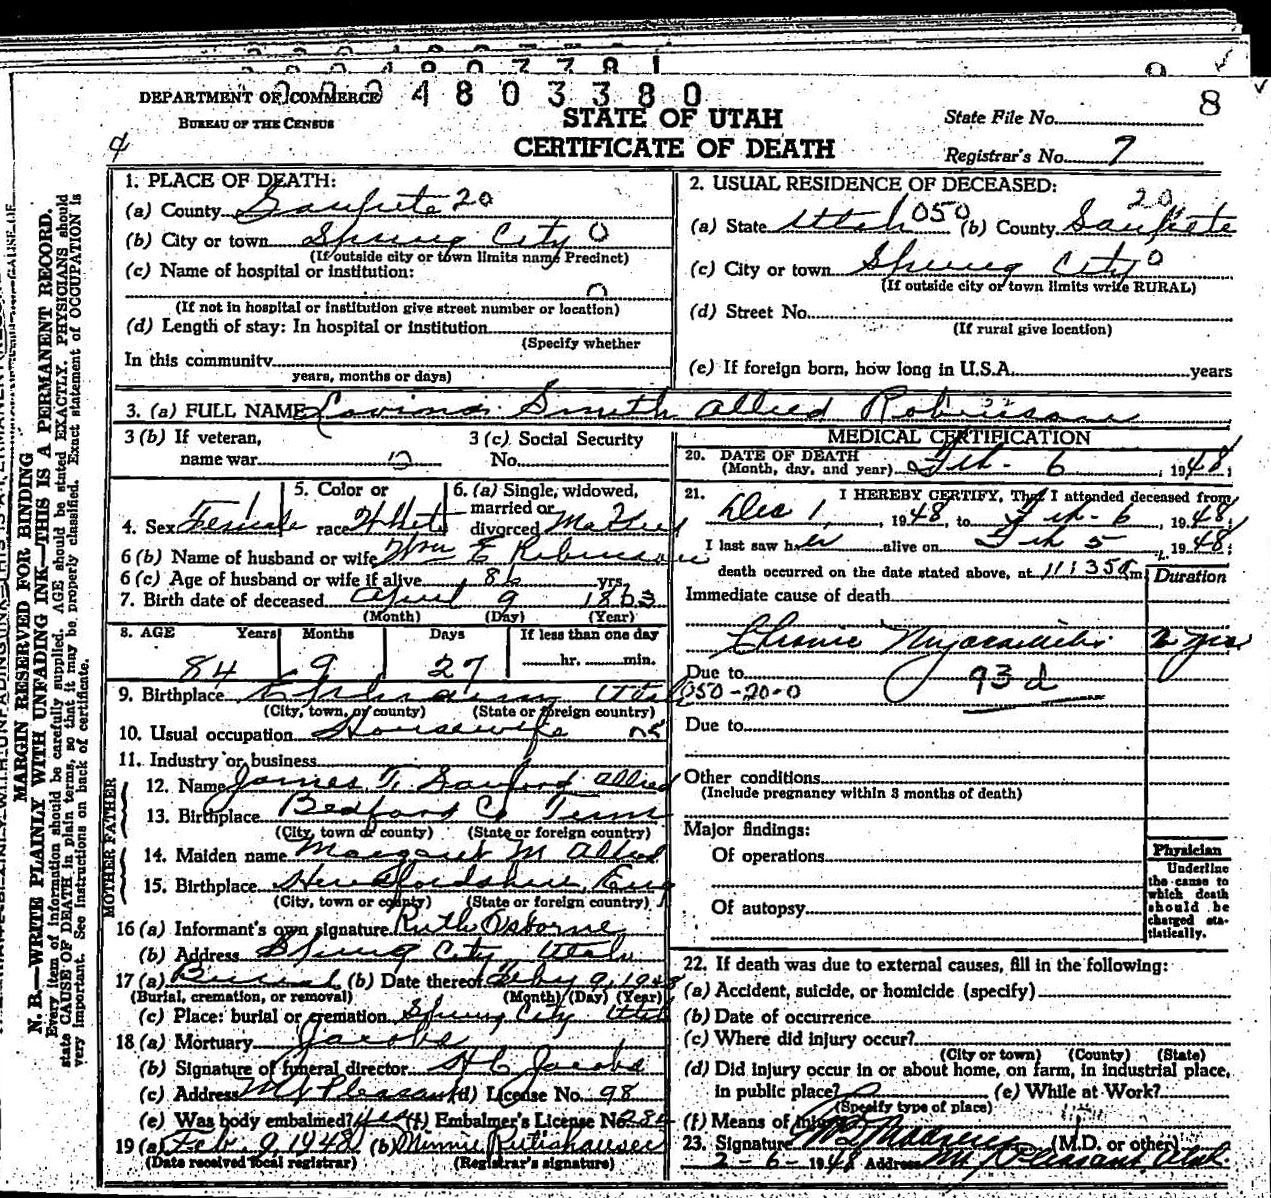 DEPARTMENT OF COMMERCE
BUREAU OF THE CENSUS
4803380
STATE OF UTAH
CERTIFICATE OF DEATH
State File No. 8
Registrar's No. 7
1. PLACE OF DEATH:
(a) County Sanpete 20
(b) City or town Spring City 0
(If outside city or town limits name Precinct)
(c) Name of hospital or institution:
0
(If not in hospital or institution give street number or location)
(d) Length of stay: In hospital or institution
(Specify whether
In this community
years, months or days)
2. USUAL RESIDENCE OF DECEASED:
20
(a) State Utah 050 (b) County Sanpete
(c) City or town Spring City 0
(If outside city or town limits write RURAL)
(d) Street No.
(If rural give location)
(e) If foreign born, how long in U.S.A. years
3. (a) FULL NAME Lovina Smith Allred Robinson
3 (b) If veteran,
name war 0
3 (c) Social Security
No.
4. Sex Female
5. Color or
race White
6. (a) Single, widowed,
married or
divorced Married
6 (b) Name of husband or wife Wm E Robinson
6 (c) Age of husband or wife if alive 86 yrs.
7. Birth date of deceased April 9 1863
(Month) (Day) (Year)
8. AGE Years Months Days If less than one day
84 9 27 hr. min.
9. Birthplace Ephraim Utah
(City, town, or county) (State or foreign country)
10. Usual occupation Housewife
11. Industry or business
FATHER
12. Name James T. Sanford Allred
13. Birthplace Bedford Co Tenn
(City, town or county) (State or foreign country)
MOTHER
14. Maiden name Margaret M Allred
15. Birthplace Herefordshire, Eng
(City, town or county) (State or foreign country)
16 (a) Informant's own signature Ruth Osborne
(b) Address Spring City Utah
17 (a) Burial (b) Date thereof Feby 9, 1948
(Burial, cremation, or removal) (Month) (Day) (Year)
(c) Place: burial or cremation Spring City Utah
18 (a) Mortuary Jacobs
(b) Signature of funeral director H C Jacobs
(c) Address Mt Pleasant (d) License No. 98
(e) Was body embalmed? yes (f) Embalmer's License No. 284
19 (a) Feb. 9, 1948 (b) Minnie Rutishauser
(Date received local registrar) (Registrar's signature)
MEDICAL CERTIFICATION
20. DATE OF DEATH
(Month, day, and year) Feb- 6, 1948
21. I HEREBY CERTIFY, That I attended deceased from
Dec 1, 1948, to Feb-6, 1948
I last saw her alive on Feb 5, 1948;
death occurred on the date stated above, at 11:35 m.
Duration
Immediate cause of death
Chronic Myocarditis 2 yrs
Due to 93d
050-20-0
Due to
Other conditions
(Include pregnancy within 3 months of death)
Major findings:
Of operations
Of autopsy
Physician
Underline
the cause to
which death
should be
charged sta-
tistically.
22. If death was due to external causes, fill in the following:
(a) Accident, suicide, or homicide (specify)
(b) Date of occurrence
(c) Where did injury occur?
(City or town) (County) (State)
(d) Did injury occur in or about home, on farm, in industrial place,
in public place? (e) While at Work?
(Specify type of place)
(f) Means of injury
23. Signature (M.D. or other)
2-6-1948 Address Mt Pleasant, Utah.
MARGIN RESERVED FOR BINDING
N. B.—WRITE PLAINLY WITH UNFADING INK—THIS IS A PERMANENT RECORD.
Every item of information should be carefully supplied. AGE should be stated EXACTLY. PHYSICIANS should
state CAUSE OF DEATH in plain terms, so that it may be properly classified. Exact statement of OCCUPATION is
very important. See instructions on back of certificate.